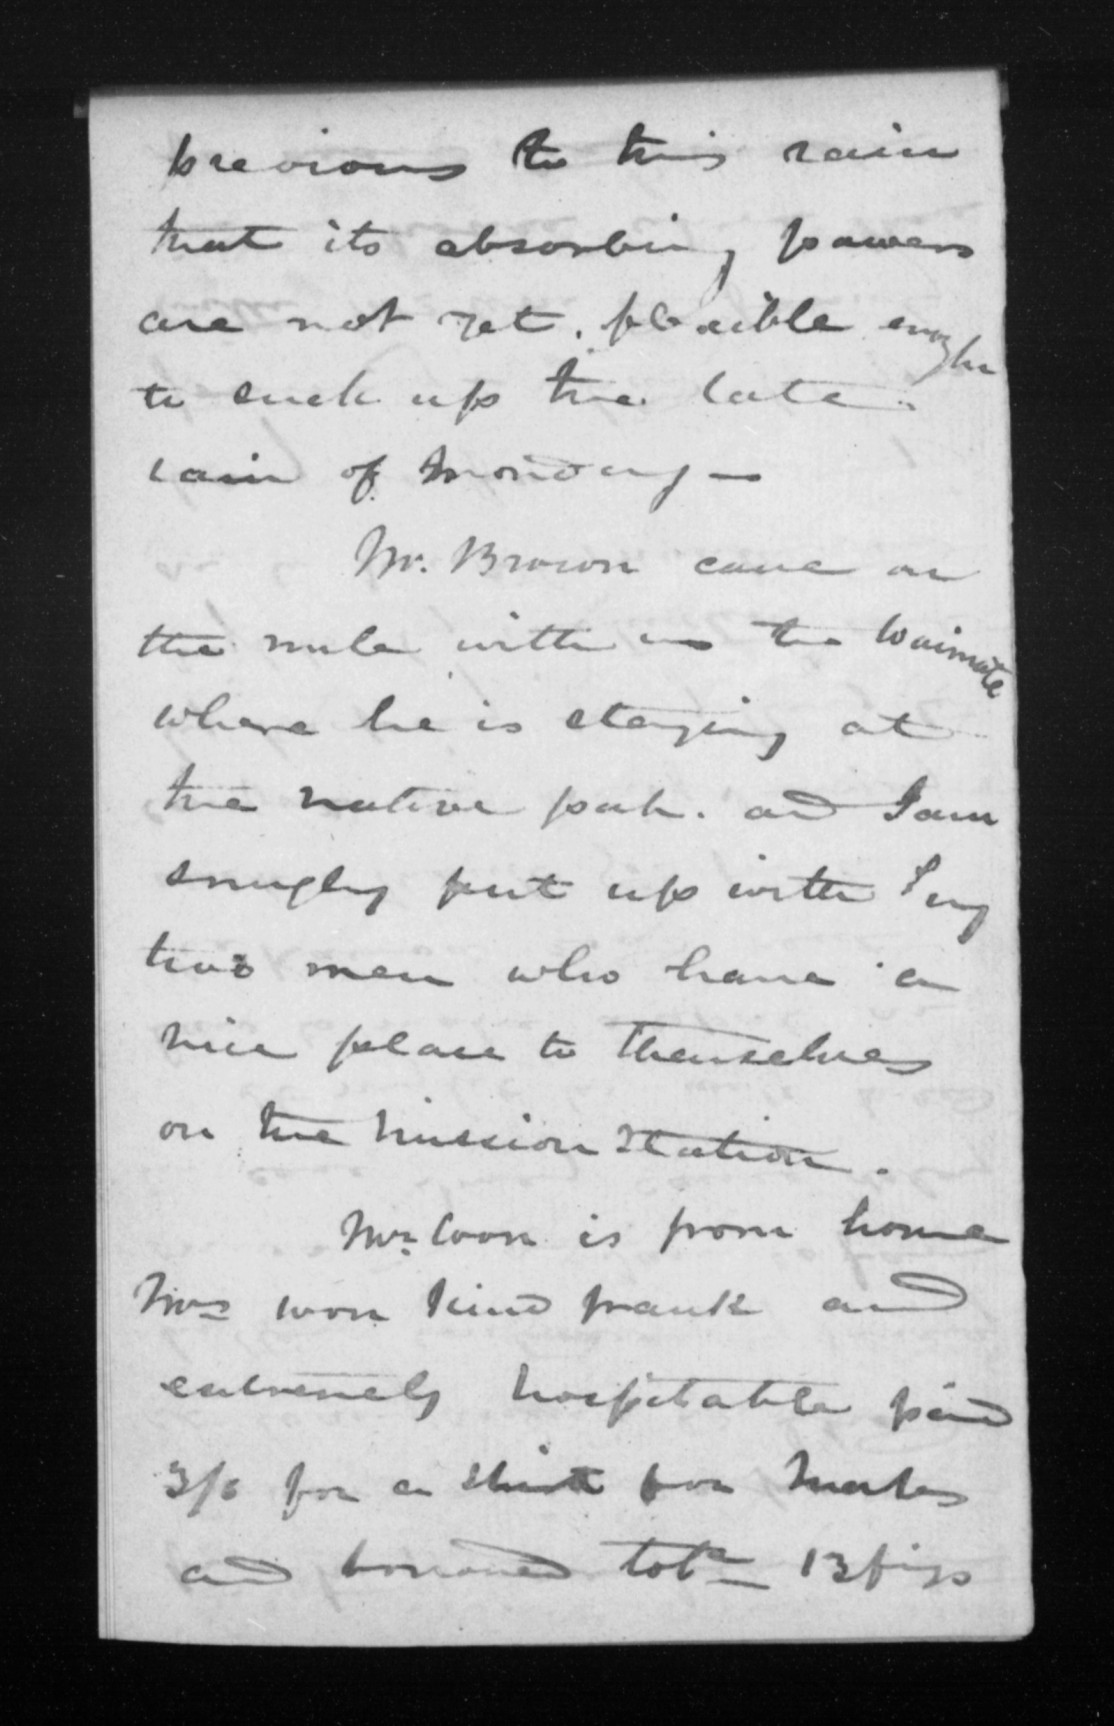 previous to this rain
that its absorbing powers
are not yet. flexible enough
to suck up the late
rain of Monday —
Mr. Brown came on
the mule with us to Waimate
where he is staying at
the native pah. and I am
snugly put up with my
two men who have a
nice place to themselves
on the Mission Station.
Mr. is from home
Mrs kind frank and
extremely hospitable paid
3/6 for a shirt for
and borrowed tobo 13 figs